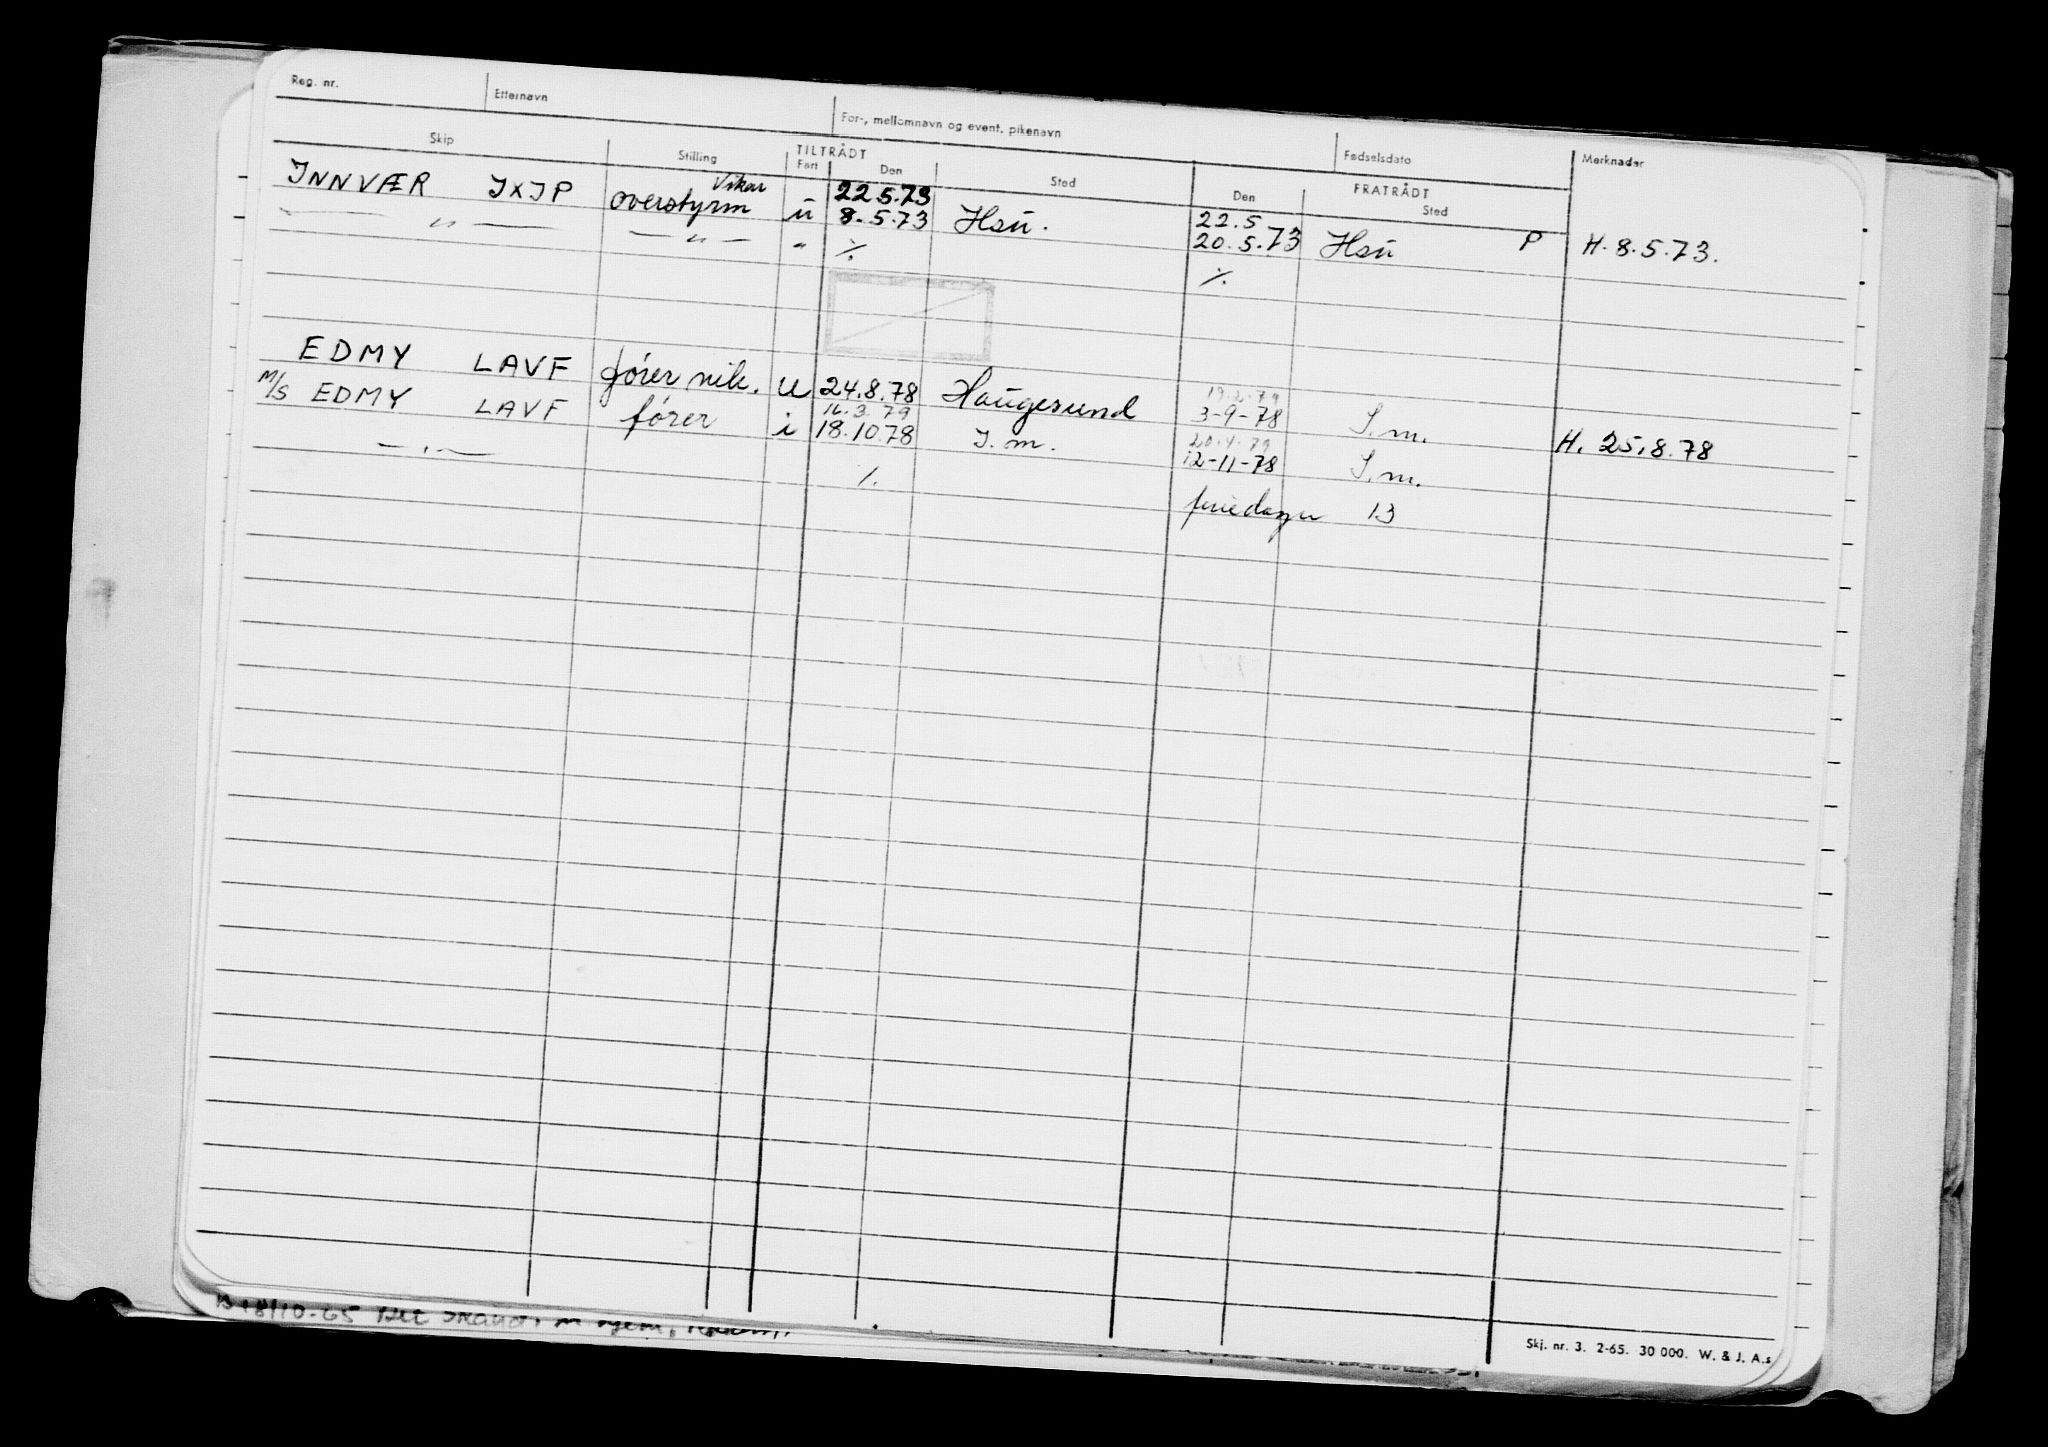 Reg. nr. Etternavn For-, mellomnavn og event. pikenavn Fødselsdato Merknader
Skip Stilling TILTRÅDT FRATRÅDT
Fart Den Sted Den Sted
Vikar 22.5.73
INNVÆR JXJP overstyrm u 8.5.73 Hsu. 22.5
20.5.73 Hsu P H. 8.5.73.
— " — — " — " ·/. ·/.
EDMY LAVF fører vik. u 24.8.78 Haugesund 19.2.79
3-9-78 S.m. H. 25.8.78
M/S EDMY LAVF fører i 16.3.79
18.10.78 S.m. 20.4.79
12-11-78 S.m.
— " — ·/. feriedager 13
18/10-65
Skj. nr. 3. 2-65. 30 000. W. & J. A.s